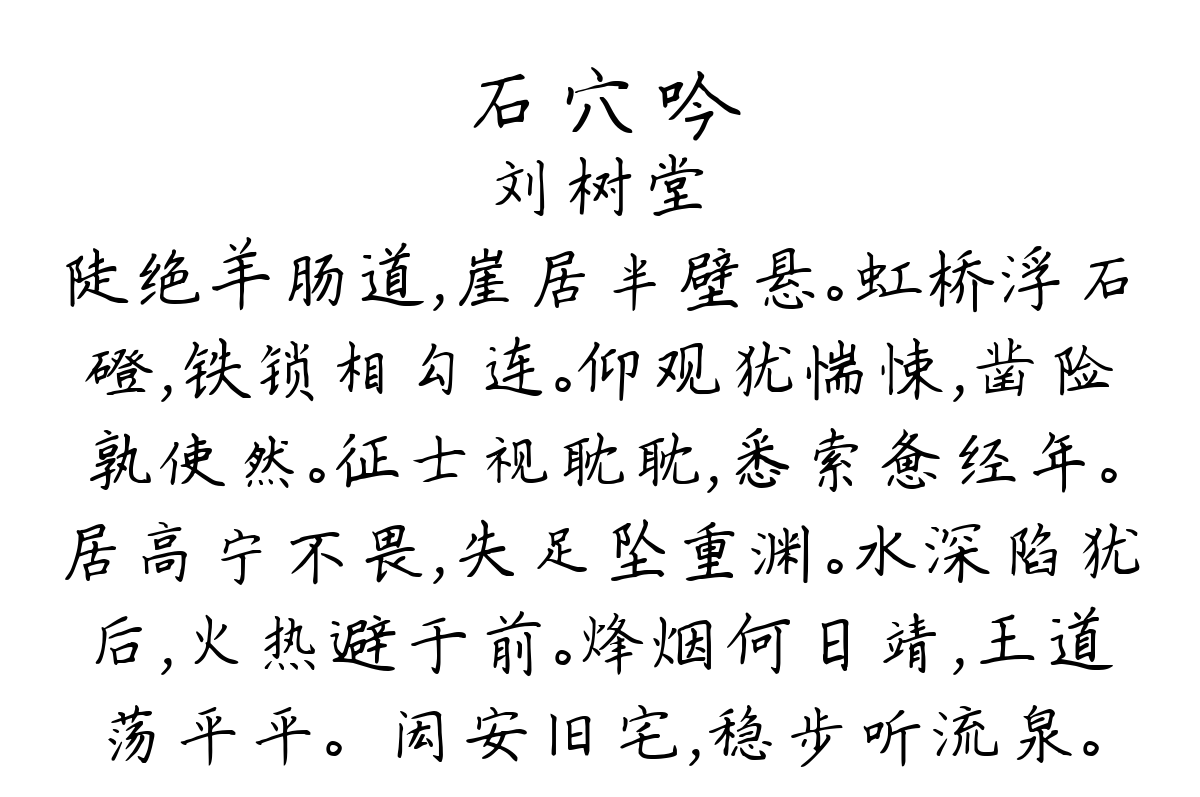 石穴吟
刘树堂
陡绝羊肠道,崖居半壁悬。虹桥浮石
磴,铁锁相勾连。仰观犹惴悚,凿险
孰使然。征士视耽耽,悉索惫经年。
居高宁不畏,失足坠重渊。水深陷犹
后,火热避于前。烽烟何日靖,王道
荡平平。闳安旧宅,稳步听流泉。